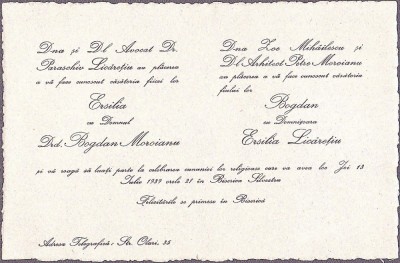 Dna și Dl Avocat Dr.
Paraschiv Licărețiu au plăcerea
a vă face cunoscut căsătoria fiicei lor
Ersilia
cu Domnul
Drd. Bogdan Moroianu
Dna Zoe Mihăilescu și
Dl Arhitect Petre Moroianu
au plăcerea a vă face cunoscut căsătoria
fiului lor
Bogdan
cu Domnișoara
Ersilia Licărețiu
și vă roagă să luați parte la celebrarea cununiei lor religioase care va avea loc Joi 13
Iulie 1939 orele 21 în Biserica Silvestru
Felicitările se primesc în Biserică
Adresa Telegrafică: Str. Olari, 35